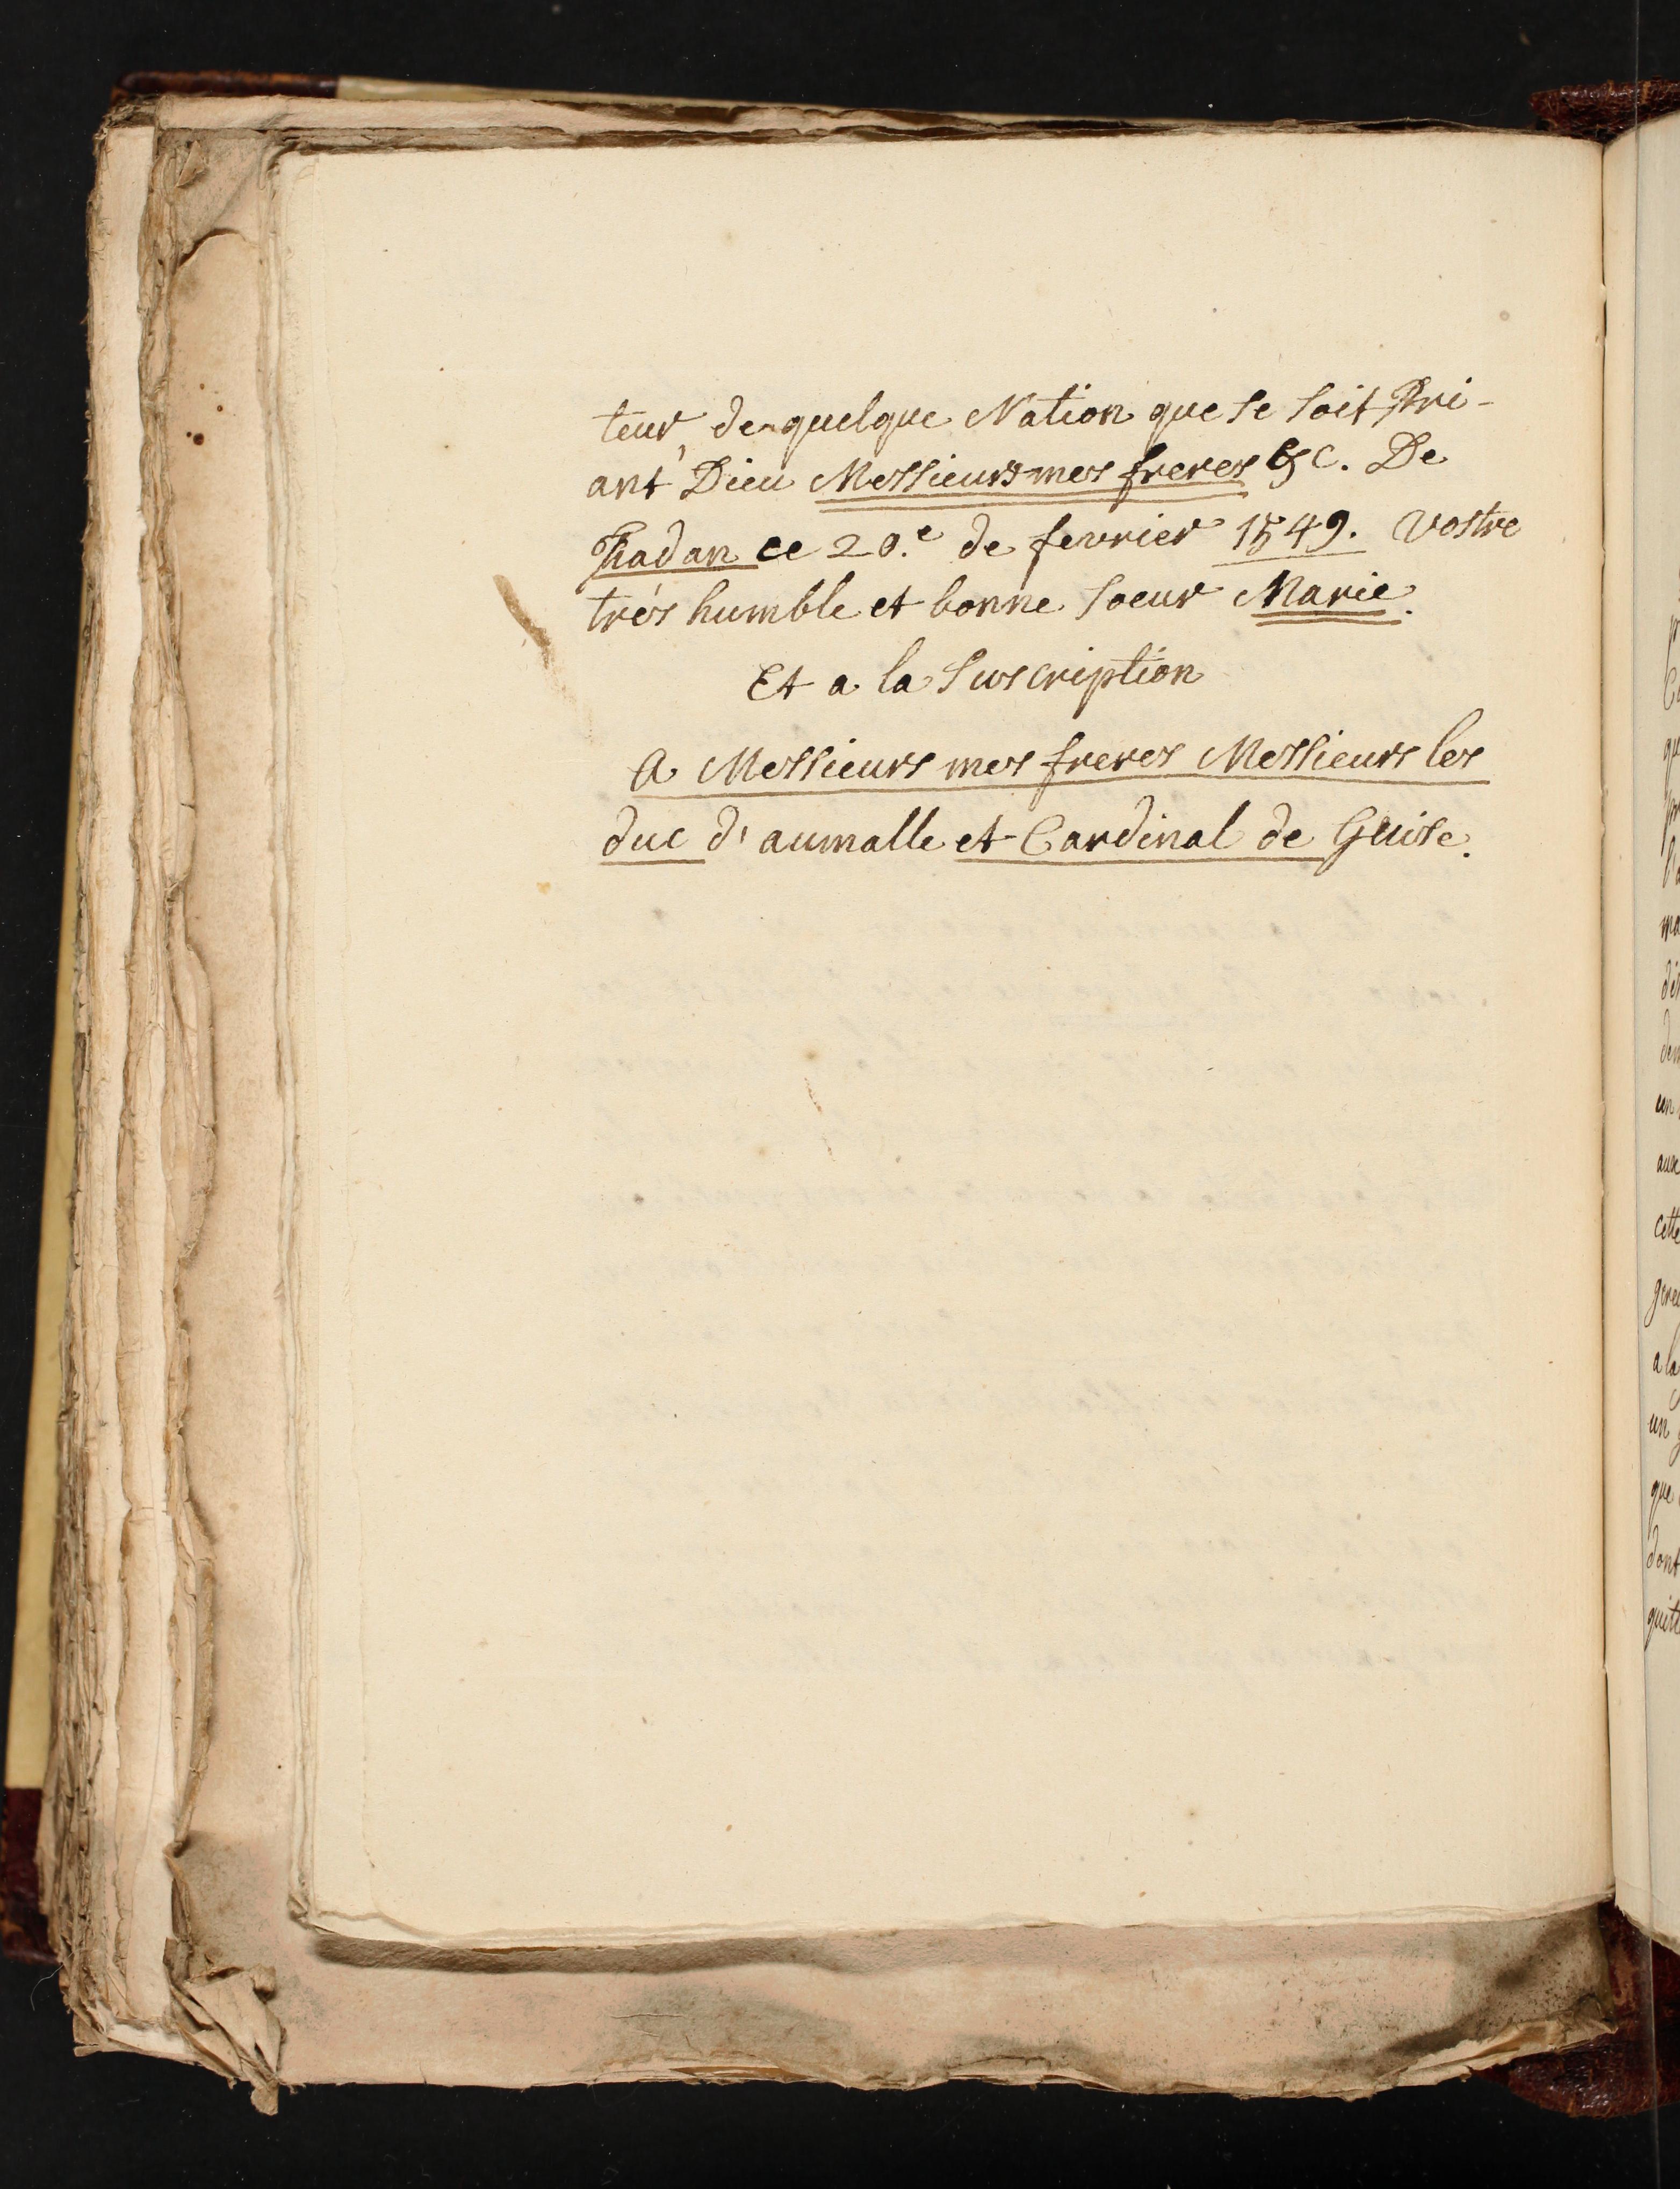 teur, de quelque Nation que se soit Pri-
ant Dieu Messieurs mes freres &c. De
hadan ce 20.e de fevrier 1549. Vostre
trés humble et bonne soeur Marie.
Et a la Suscription
A Messieurs mes freres Messieurs les
duc d'aumalle et Cardinal de Guise.